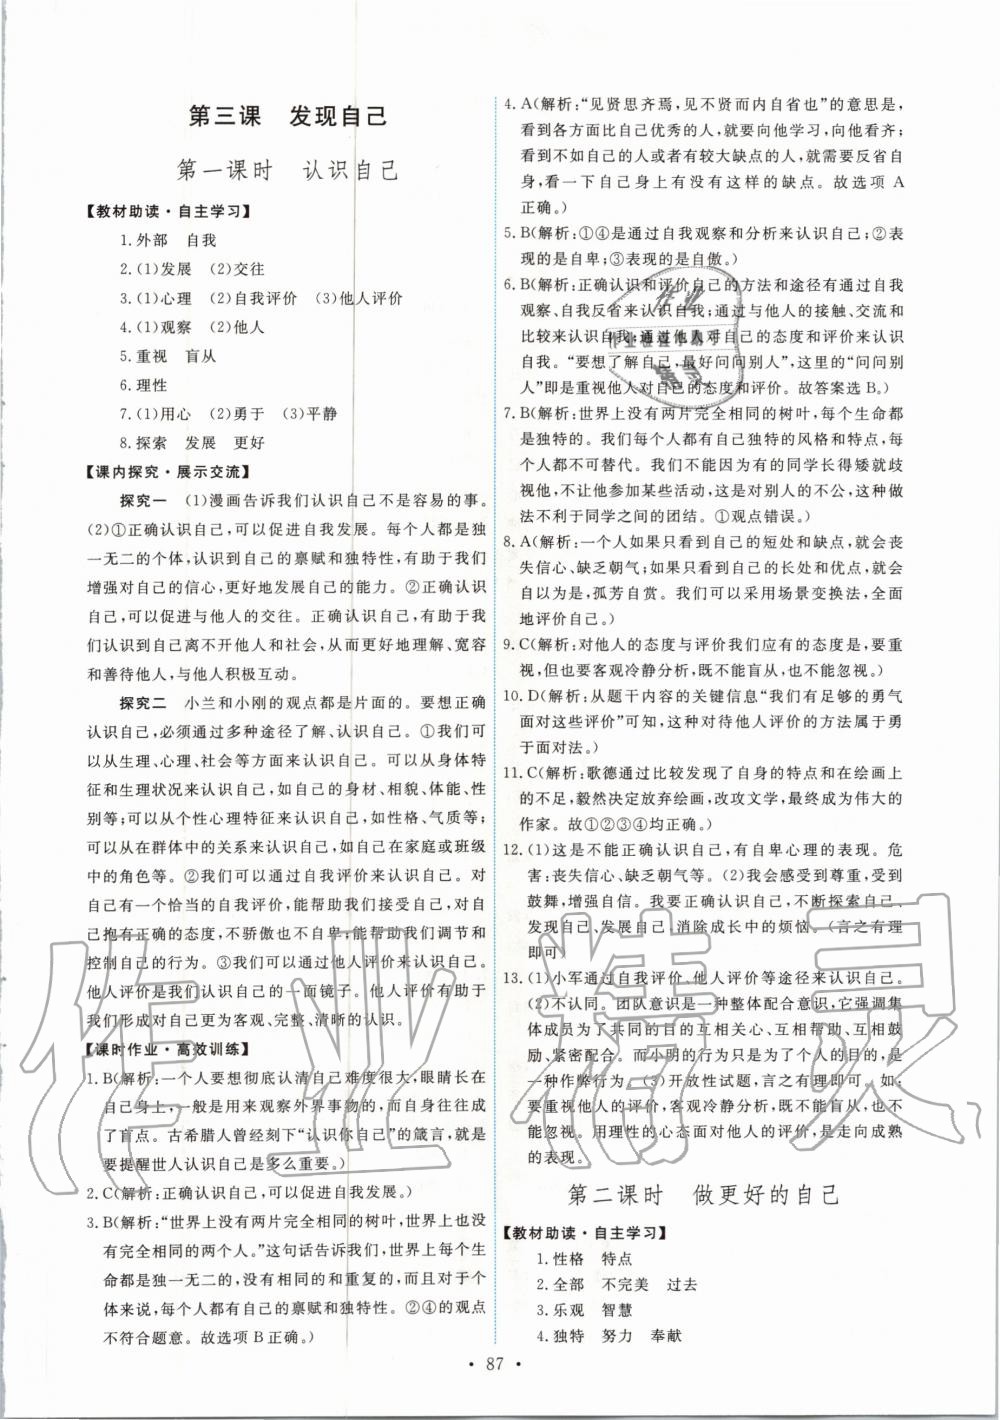 第三课　发现自己
第一课时　认识自己
【教材助读·自主学习】
1.外部　自我
2.(1)发展　(2)交往
3.(1)心理　(2)自我评价　(3)他人评价
4.(1)观察　(2)他人
5.重视　盲从
6.理性
7.(1)用心　(2)勇于　(3)平静
8.探索　发展　更好
【课内探究·展示交流】
探究一　(1)漫画告诉我们认识自己不是容易的事。
(2)①正确认识自己,可以促进自我发展。每个人都是独
一无二的个体,认识到自己的禀赋和独特性,有助于我们
增强对自己的信心,更好地发展自己的能力。②正确认识
自己,可以促进与他人的交往。正确认识自己,有助于我
们认识到自己离不开他人和社会,从而更好地理解、宽容
和善待他人,与他人积极互动。
探究二　小兰和小刚的观点都是片面的。要想正确
认识自己,必须通过多种途径了解、认识自己。①我们可
以从生理、心理、社会等方面来认识自己。可以从身体特
征和生理状况来认识自己,如自己的身材、相貌、体能、性
别等;可以从个性心理特征来认识自己,如性格、气质等;
可以从在群体中的关系来认识自己,如自己在家庭或班级
中的角色等。②我们可以通过自我评价来认识自己。对
自己有一个恰当的自我评价,能帮助我们接受自己,对自
己抱有正确的态度,不骄傲也不自卑;能帮助我们调节和
控制自己的行为。③我们可以通过他人评价来认识自己。
他人评价是我们认识自己的一面镜子。他人评价有助于
我们形成对自己更为客观、完整、清晰的认识。
【课时作业·高效训练】
1. B(解析:一个人要想彻底认清自己难度很大,眼睛长在
自己身上,一般是用来观察外界事物的,而在自己身上成
了盲点。古希腊人曾经刻下“认识你自己”的箴言,就是
要提醒世人认识自己是多么重要。)
2. C(解析:正确认识自己,可以促进自我发展。)
3. B(解析:“世界上没有两片完全相同的树叶,世界上也没有
完全相同的两个人。”这句话告诉我们,世界上的每个生
命都是独一无二的,没有相同的和重复的,而且对每个个
体来说,每个人都有自己的禀赋和独特性。②④的观点
不符合题意。故选项 B 正确。)
4. A(解析:“见贤思齐焉,见不贤而内自省也”的意思是,
看到各方面比自己优秀的人,就要向他学习,向他看齐;
看到不如自己或者有较大缺点的人,就要反省自
身,看一下自己身上有没有这样的缺点。故选项 A
正确。)
5. B(解析:①④是通过自我观察和分析来认识自己;②表
现的是自卑;③表现的是自傲。)
6. B(解析:正确认识和评价自己的方法和途径有通过自我
观察、自我反省来认识自我;通过与他人的接触、交流和
比较来认识自我;通过他人对自己的态度和评价来认识
自我。“要想了解自己,最好问问别人”,这里的“问问别
人”即是重视他人对自己的态度和评价。故答案选 B。)
7. B(解析:世界上没有两片完全相同的树叶,每个生命都
是独特的。我们每个人都有自己独特的风格和特点,每
个人都不可替代。我们不能因为有的同学长得矮就歧
视他,不让他参加某些活动,这是对别人的不公,这种做
法不利于同学之间的团结。①观点错误。)
8. A(解析:一个人如果只看到自己的短处和缺点,就会丧
失信心、缺乏朝气;如果只看到自己的长处和优点,就会
自以为是,孤芳自赏。我们可以采用场景变换法,全面
地评价自己。)
9. C(解析:对他人的态度与评价我们应有的态度是,要重
视,但也要客观冷静分析,既不能盲从,也不能忽视。)
10. D(解析:从题干内容的关键信息“我们有足够的勇气
面对这些评价”可知,这种对待他人评价的方法属于勇
于面对法。)
11. C(解析:歌德通过比较发现了自身的特点和在绘画上
的不足,毅然决定放弃绘画,改攻文学,最终成为伟大的
作家。故①②③④均正确。)
12. (1)这是不能正确认识自己,有自卑心理的表现。危
害:丧失信心、缺乏朝气等。(2)我会感受到尊重,受到
鼓舞,增强自信。我要正确认识自己,不断探索自己、
发现自己、发展自己,消除成长中的烦恼。(言之有理
即可)
13. (1)小军通过自我评价、他人评价等途径来认识自己。
(2)不认同。团队意识是一种整体配合意识,它强调集
体成员为了共同的目的互相关心、互相帮助、互相鼓
励、紧密配合。而小明的行为只是为了个人的私利,是
一种作弊行为。(3)开放性试题,言之有理即可。如:
要重视他人的评价,客观冷静分析,既不能盲从,也不能
忽视。用理性的心态面对他人的评价,是走向成熟
的表现。
第二课时　做更好的自己
【教材助读·自主学习】
1.性格　特点
2.全部　不完美　过去
3.乐观　智慧
4.独特　努力　奉献
• 87 •
作业精灵